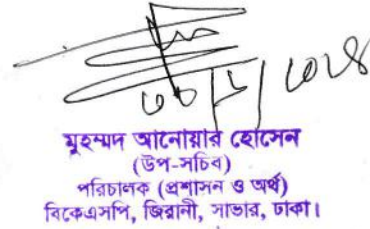 মুহম্মদ আনোয়ার হোসেন
(উপ-সচিব)
পরিচালক (প্রশাসন ও অর্থ)
বিকেএসপি, জিরানী, সাভার, ঢাকা।